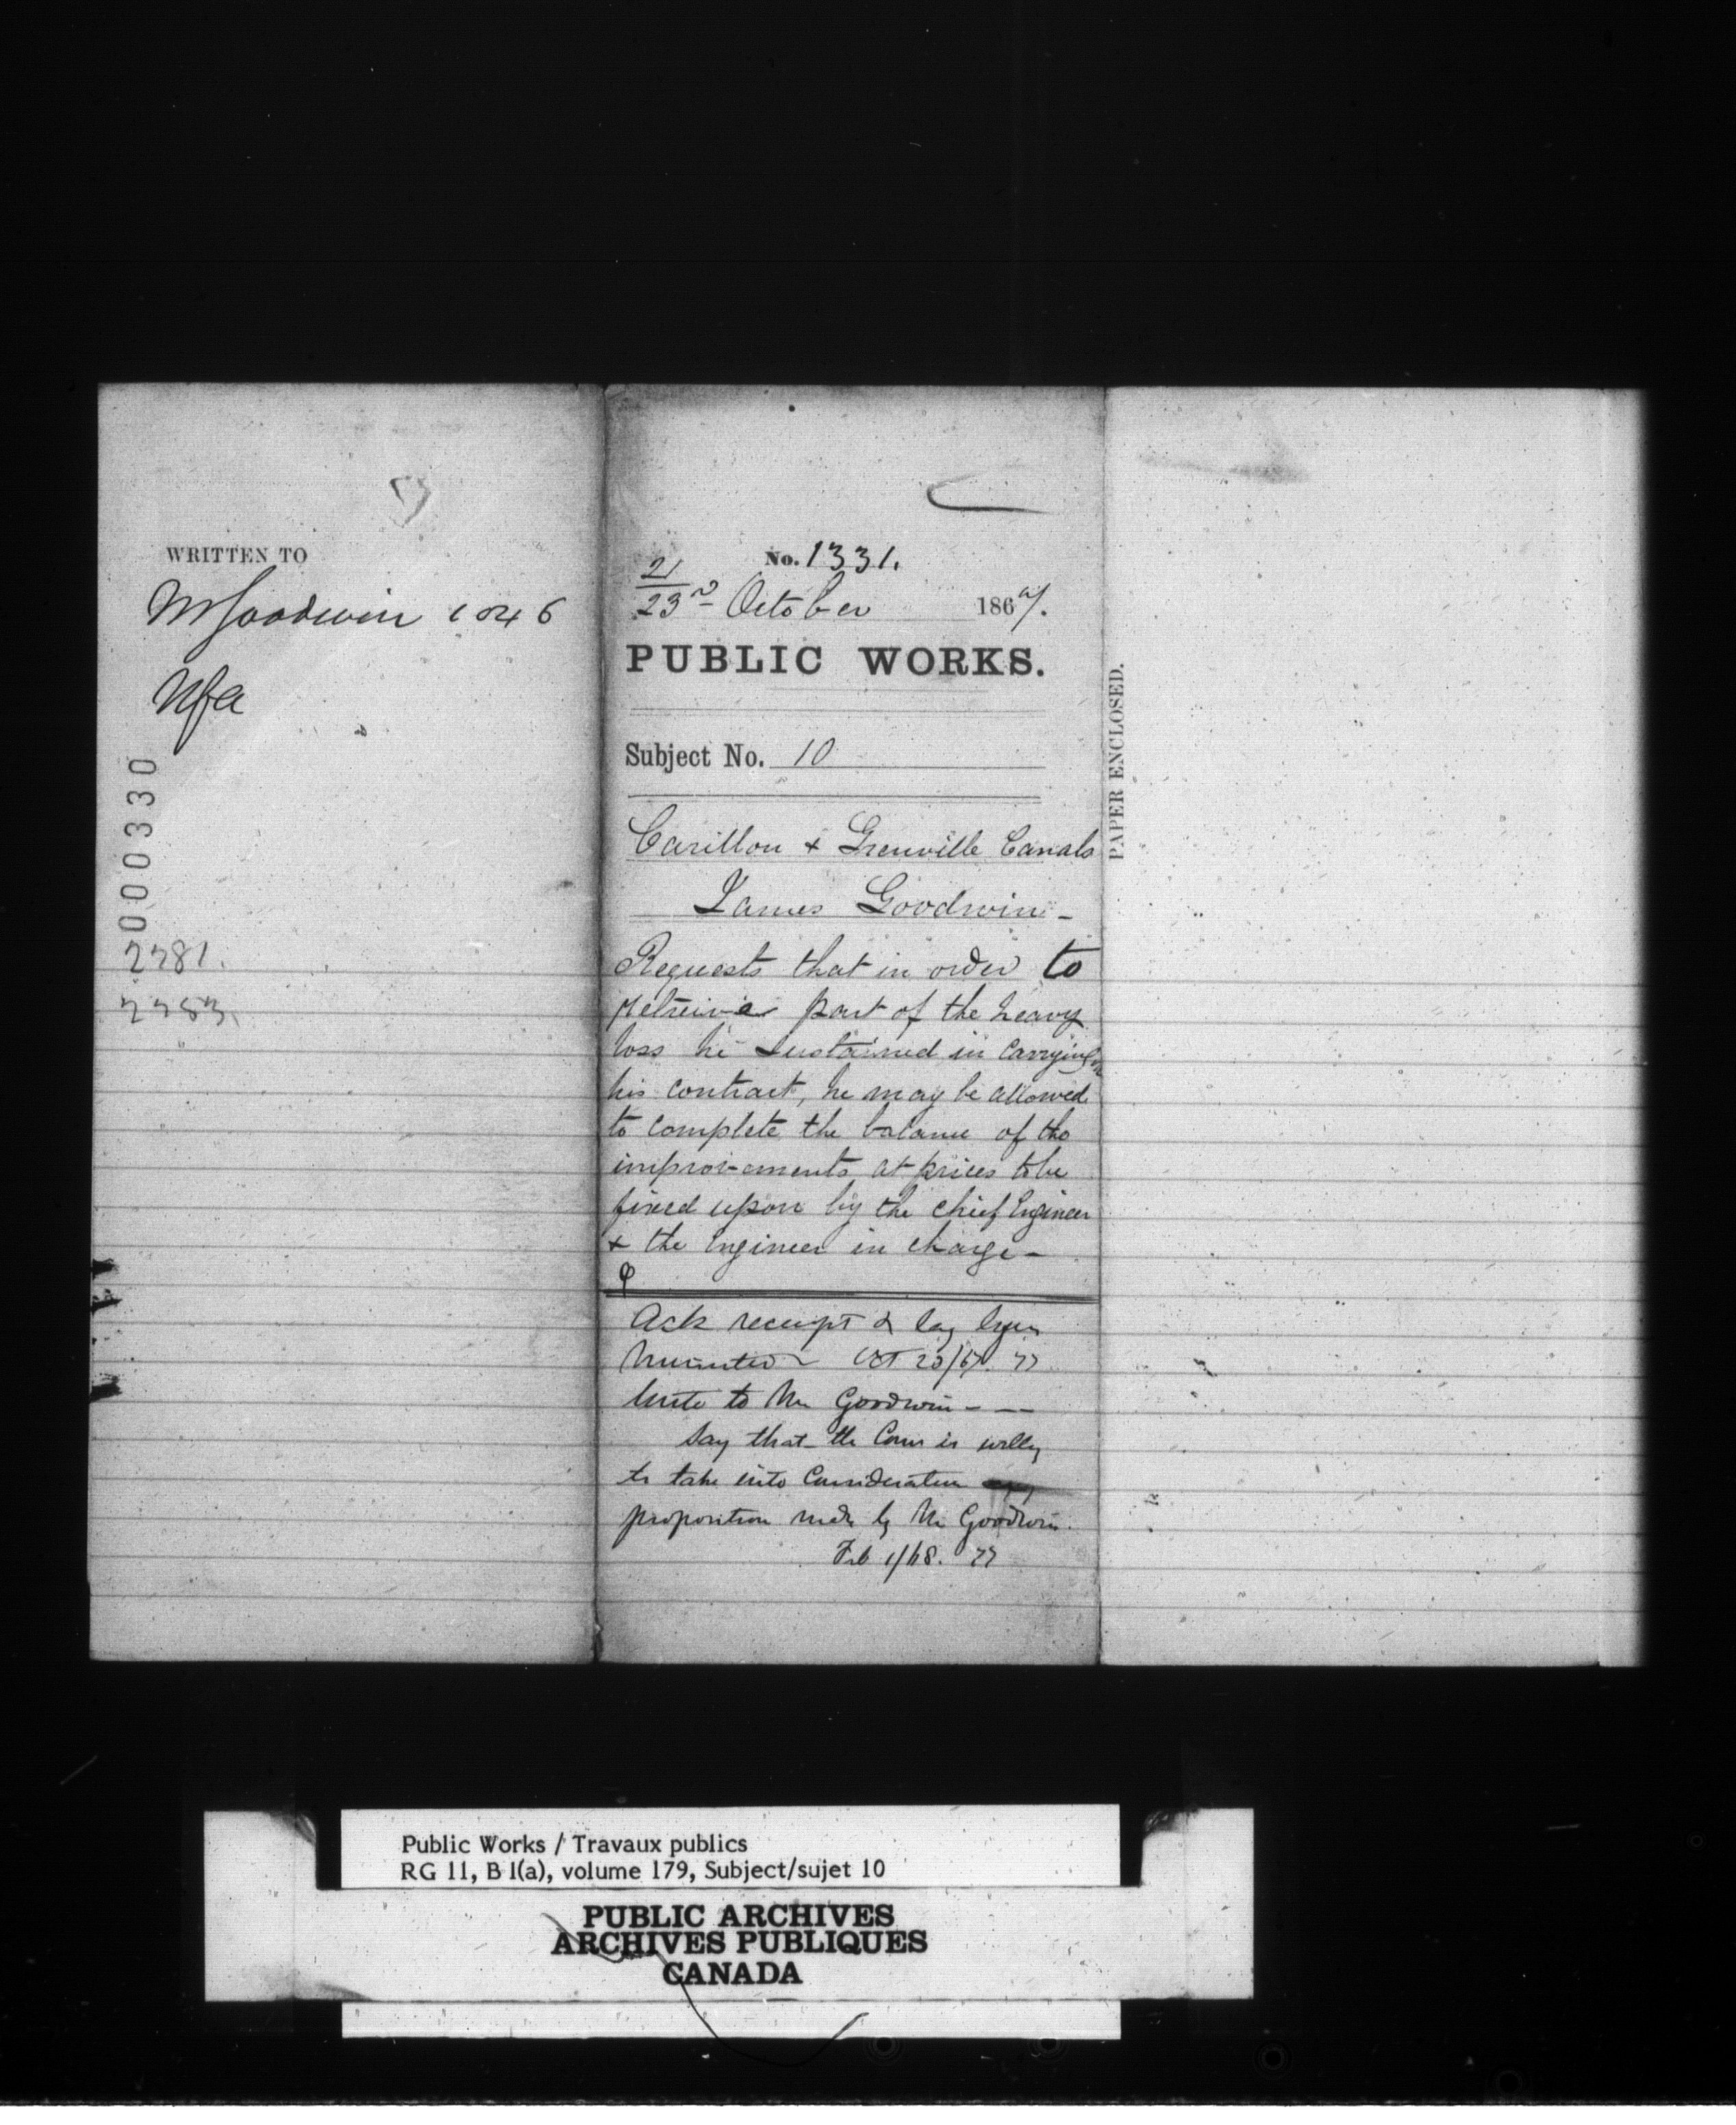 WRITTEN TO
Mr Goodwin 1046
Nfa
000330
2781.
2783.
No. 1331.
21
23rd October 1867.
PUBLIC WORKS.
Subject No. 10
Carillon & Grenville Canals
James Goodwin -
Requests that in order to
retreive part of the heavy
loss he sustained in carrying on
his contract, he may be allowed
to complete the balance of the
improvements at prices to be
fixed upon by the chief Engineer
& the Engineer in charge -
Ack receipt & lay
Oct 23/67.
Write to Mr Goodwin - - -
Say that the Comr is willing
to take into Consideration
proposition made by Mr Goodwin.
Feb 1/68.
PAPER ENCLOSED.
Public Works / Travaux publics
RG 11, B 1(a), volume 179, Subject/sujet 10
PUBLIC ARCHIVES
ARCHIVES PUBLIQUES
CANADA